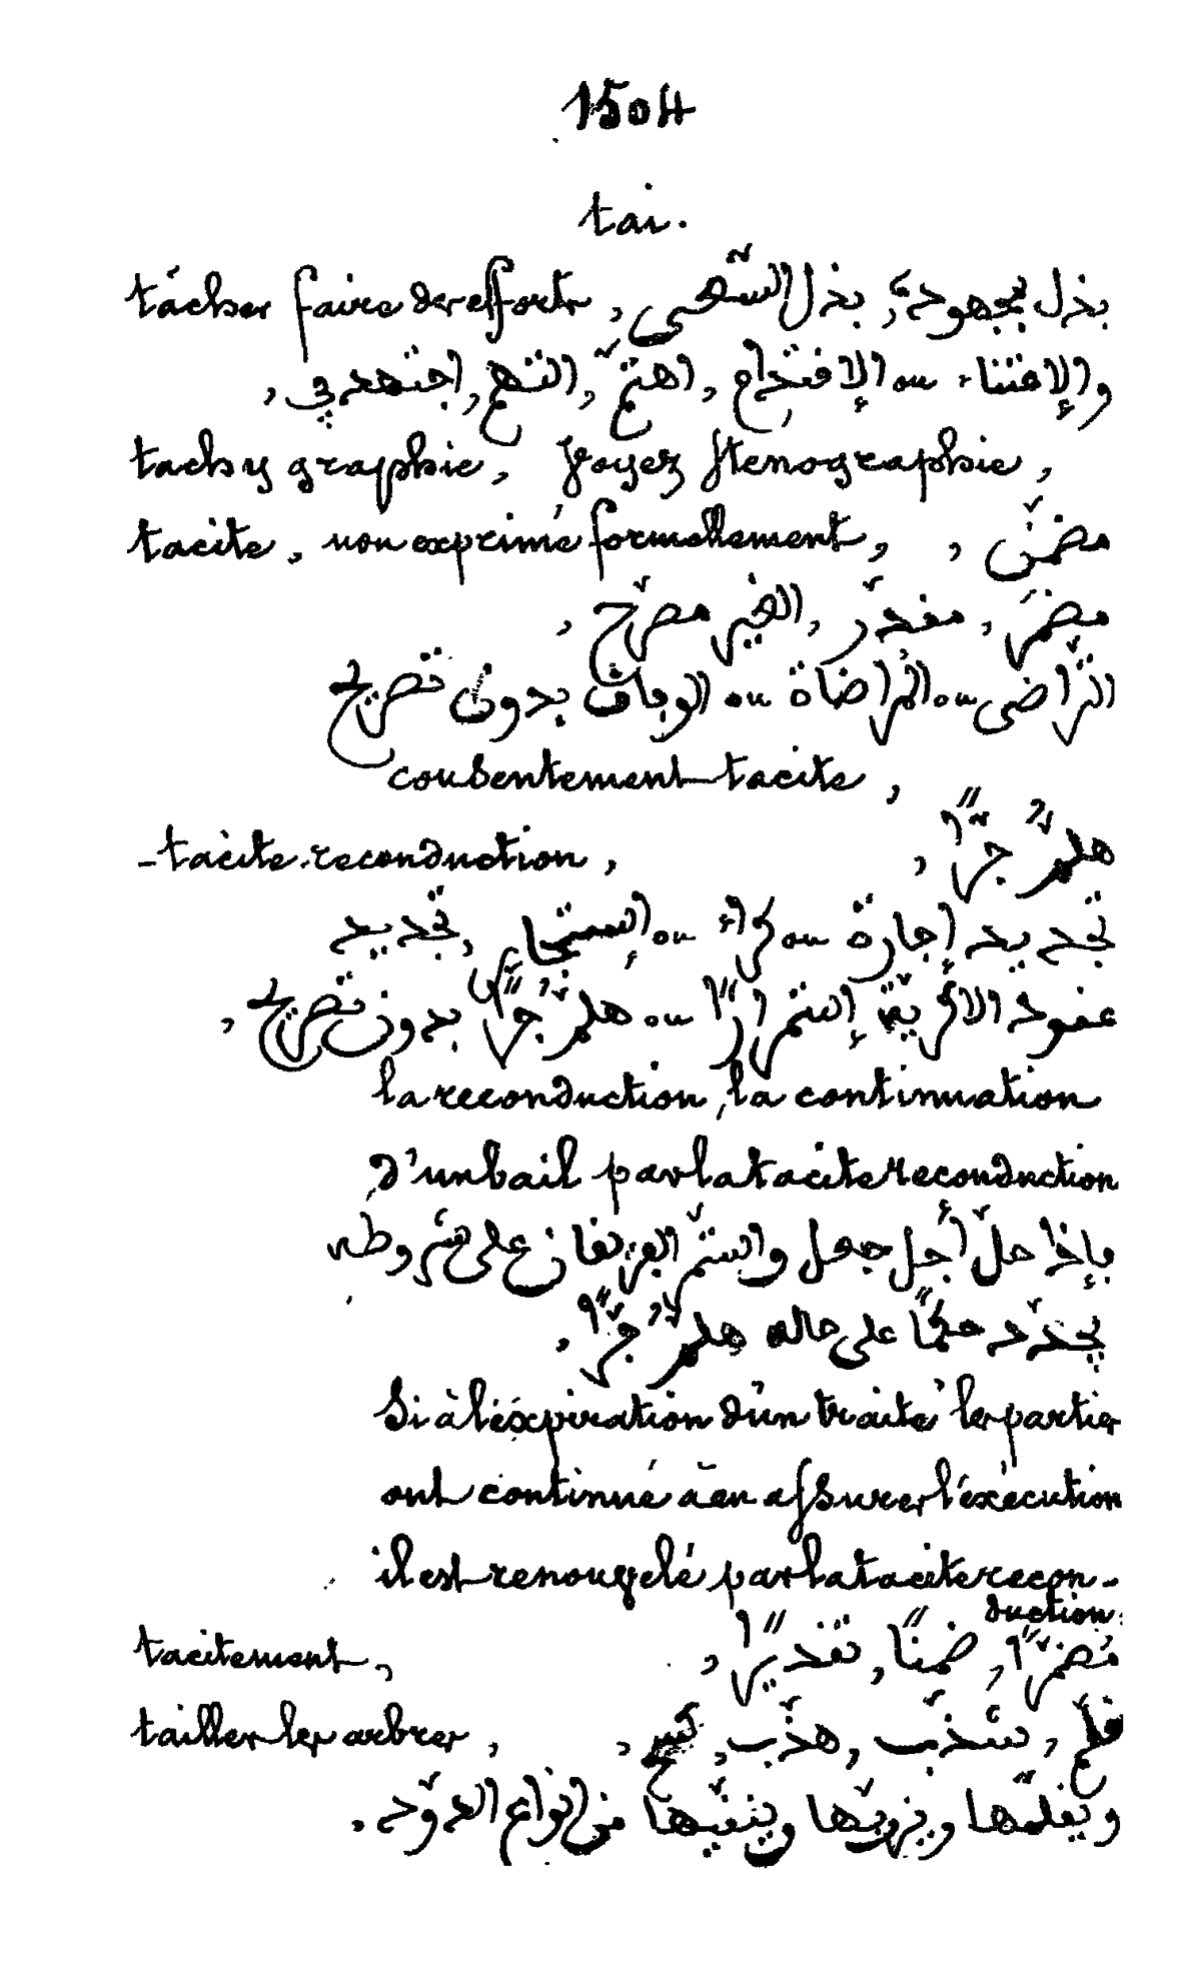 1504
tai.
tâcher faire des efforts, بذل مجهوده, بذل السّعي,
والإعتناء ou الإقتداح, اهتمّ, التهم, اجتهد في,
tachygraphie, Voyez Sténographie,
tacite, non exprimé formellement, , مضمّن
مضمَر, مقدّر, الغير مصرّح,
التراضى ou المراضاة ou الوفاق بدون تصريح
consentement tacite,
-tacite reconduction, هلمّ جرًّا,
تجديد إجارة ou كراء ou إستيجار, تجديد
عقود الاكرية إستمرارًا ou هلمّ جرًّا بدون تصريح,
la reconduction, la continuation
d'un bail par la tacite reconduction
فإذا حلّ أجل جعل واستمرّ الفريقان على شروطه
يجدّد حكمًا على حاله هلمّ جرًّا,
Si à l'éxpiration d'un traité les parties
ont continué à en assurer l'éxécution
il est renouvelé par la tacite recon-
duction.
tacitement, مُضمرًا, ضمنًا, تقديرًا,
tailler les arbres, قلّم, شذّب, هذّب,
ويقلّمها ويزوبّها وينقّيها من انواع الدوّد.